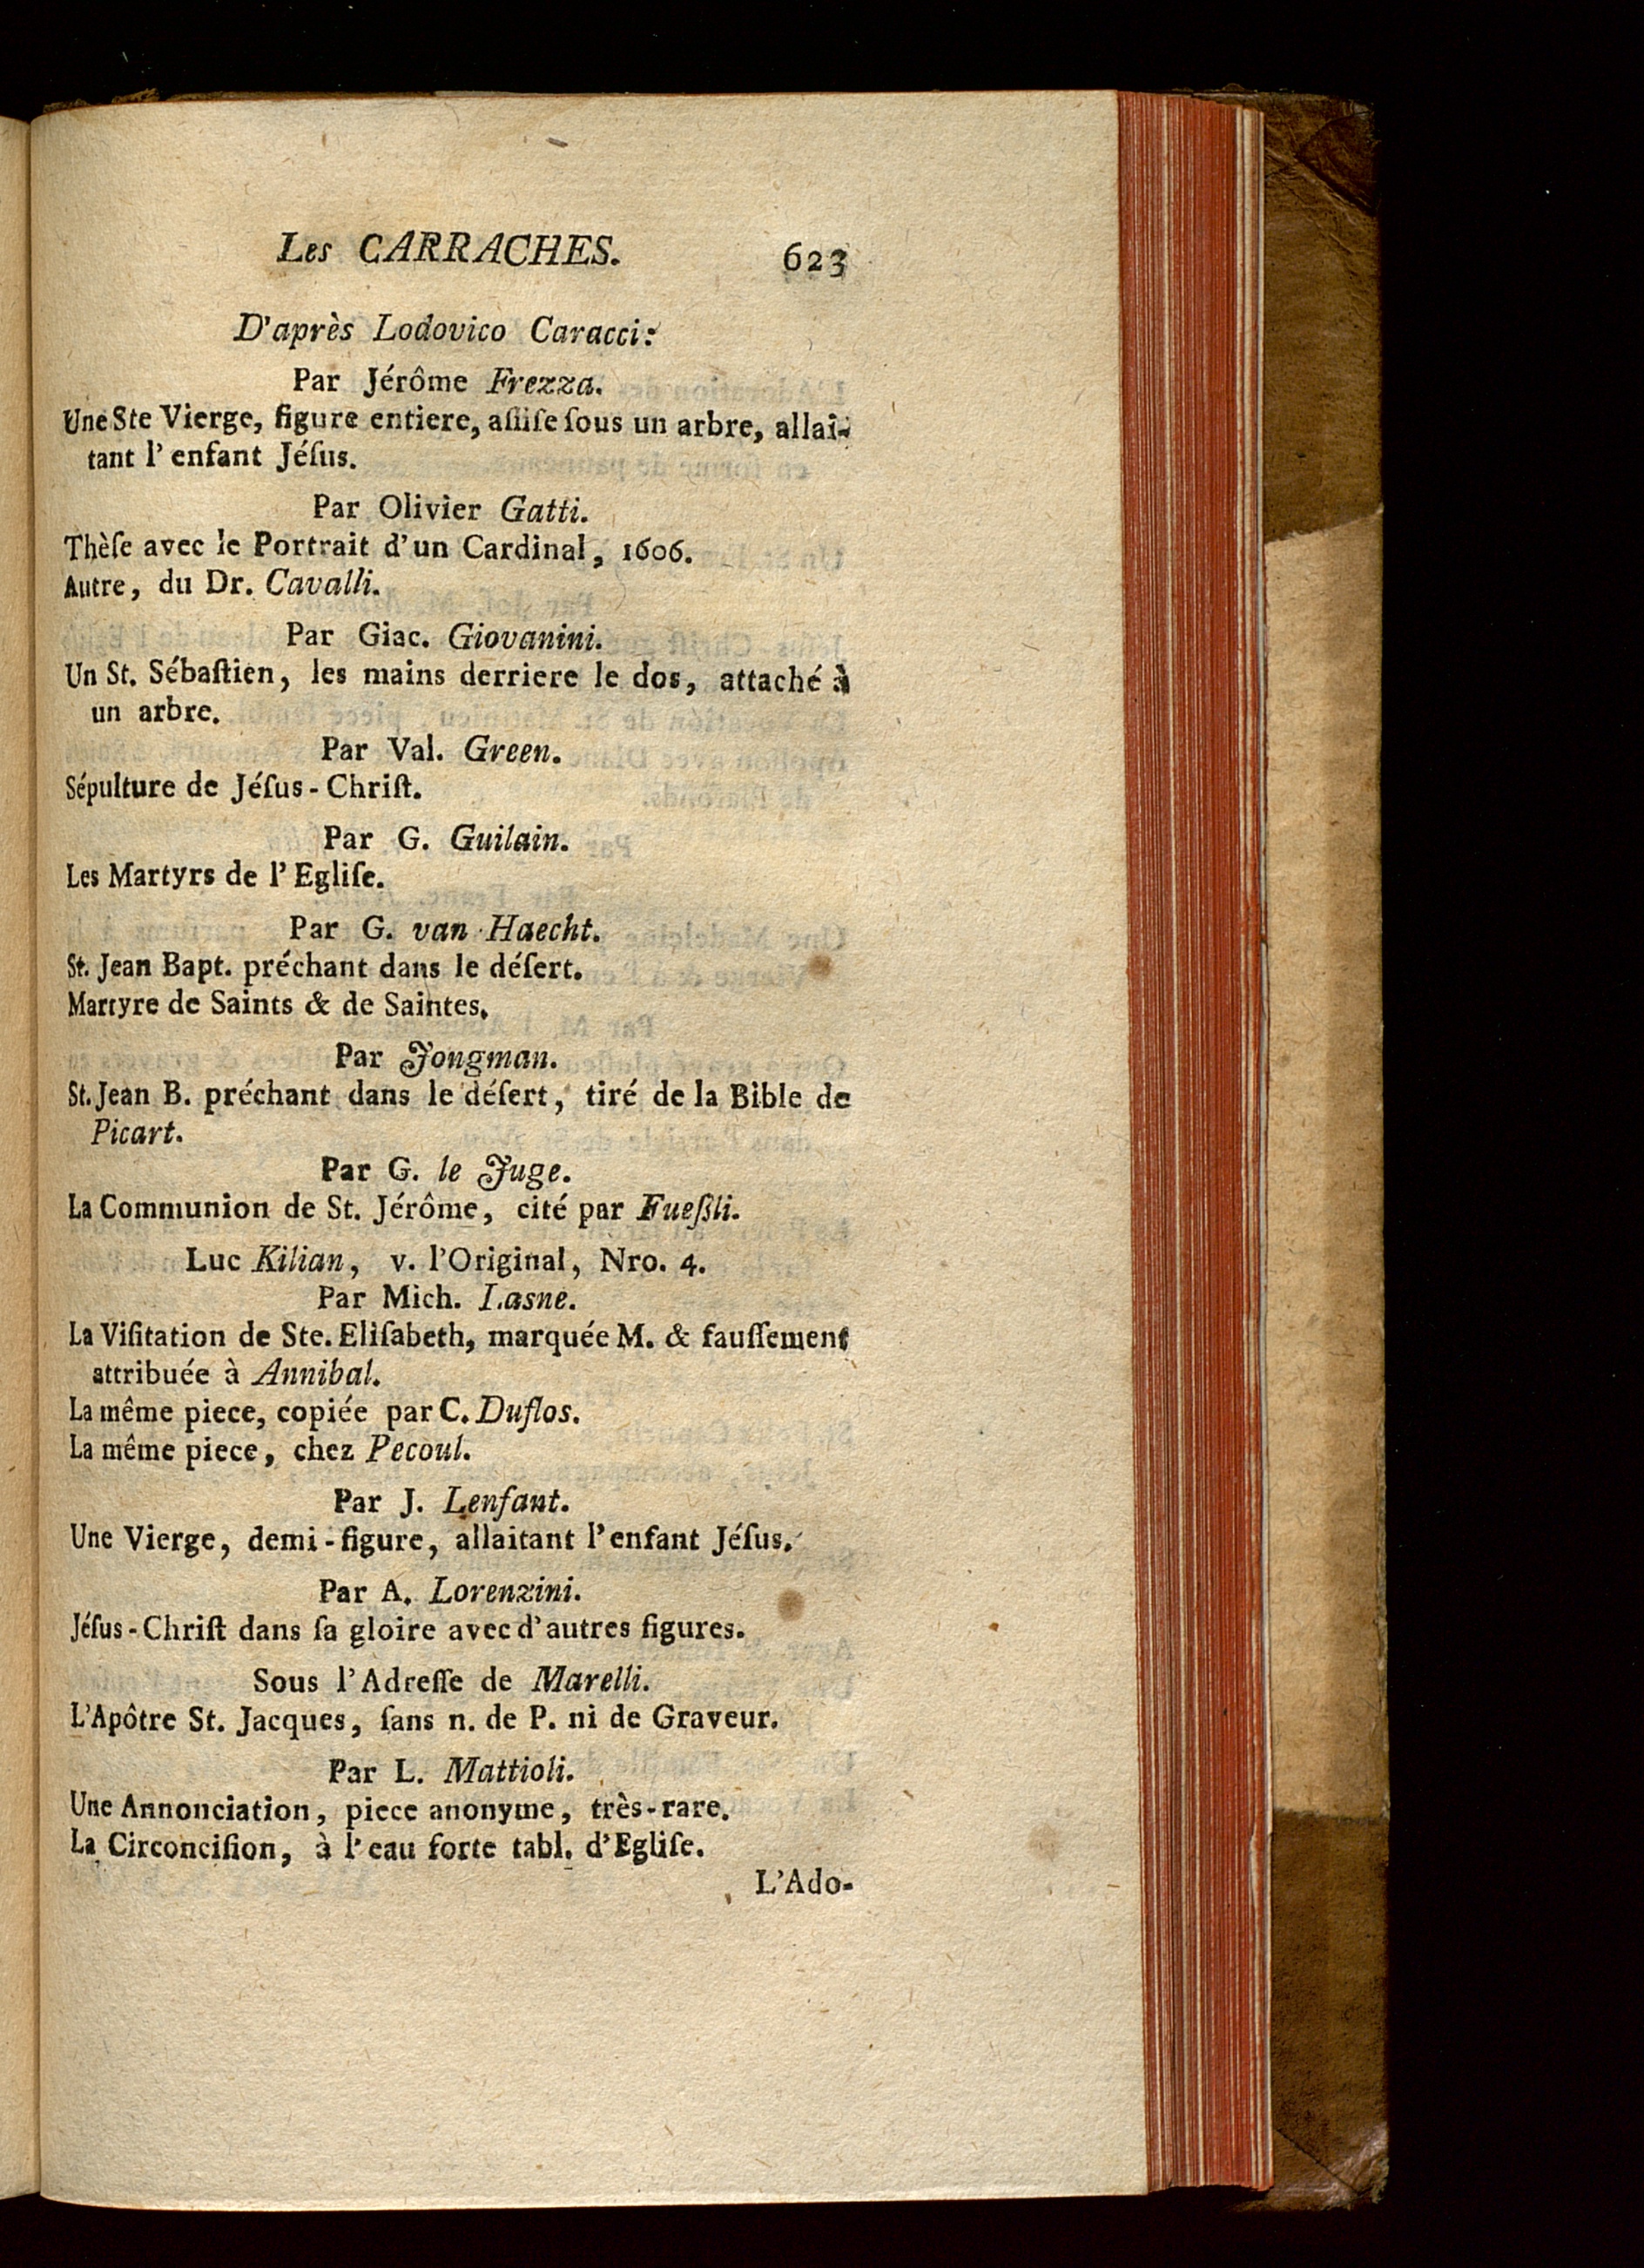 Les CARRACHES. 623
D'après Lodovico Caracci:
Par Jérôme Frezza.
Une Ste Vierge, figure entiere, aſſiſe ſous un arbre, allai-
tant l'enfant Jéſus.
Par Olivier Gatti.
Thèſe avec le Portrait d'un Cardinal, 1606.
Autre, du Dr. Cavalli.
Par Giac. Giovanini.
Un St. Sébaſtien, les mains derriere le dos, attaché à
un arbre.
Par Val. Green.
Sépulture de Jéſus-Chriſt.
Par G. Guilain.
Les Martyrs de l'Egliſe.
Par G. van Haecht.
St. Jean Bapt. préchant dans le déſert.
Martyre de Saints & de Saintes.
Par Jongman.
St. Jean B. préchant dans le déſert, tiré de la Bible de
Picart.
Par G. le Juge.
La Communion de St. Jérôme, cité par Fueßli.
Luc Kilian, v. l'Original, Nro. 4.
Par Mich. Lasne.
La Viſitation de Ste. Eliſabeth, marquée M. & fauſſement
attribuée à Annibal.
La même piece, copiée par C. Duflos.
La même piece, chez Pecoul.
Par J. Lenfant.
Une Vierge, demi-figure, allaitant l'enfant Jéſus.
Par A. Lorenzini.
Jéſus-Chriſt dans ſa gloire avec d'autres figures.
Sous l'Adreſſe de Marelli.
L'Apôtre St. Jacques, ſans n. de P. ni de Graveur.
Par L. Mattioli.
Une Annonciation, piece anonyme, très-rare.
La Circonciſion, à l'eau forte tabl. d'Egliſe.
L'Ado-